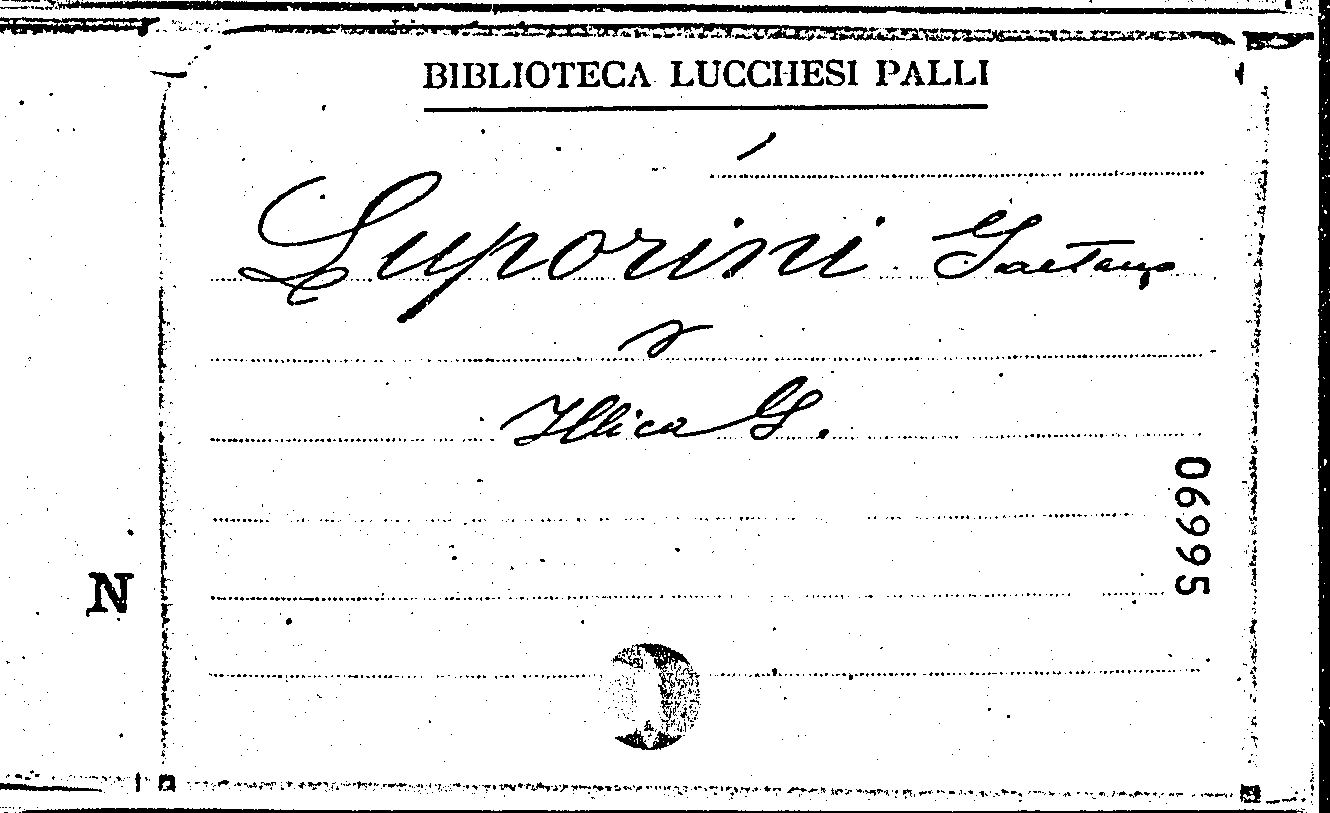 BIBLIOTECA LUCCHESI PALLI
Luporini Gaetano
Illica G.
06995
N